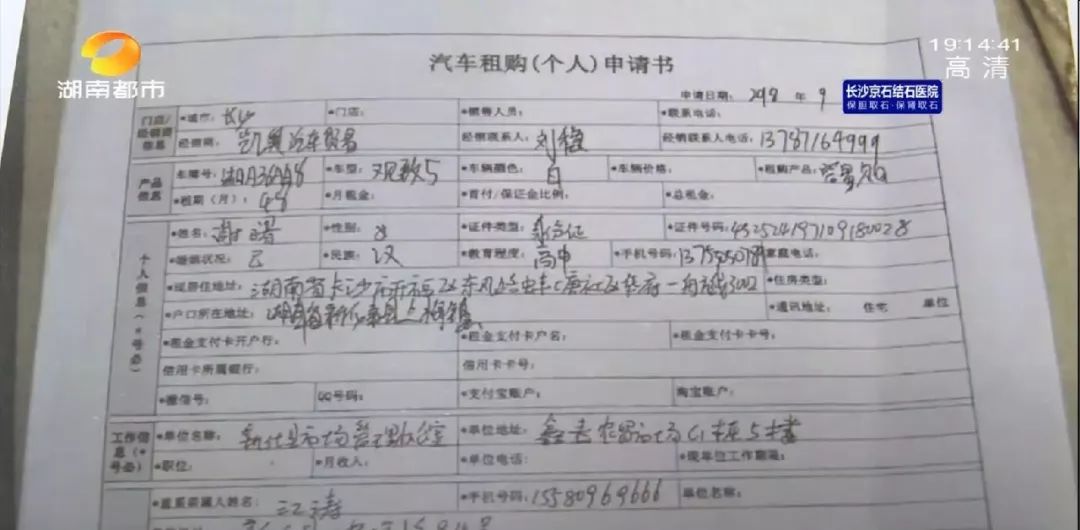 湖南都市
19:14:41
高清
长沙京石结石医院
保胆取石·保肾取石
汽车租购(个人)申请书
申请日期: 2018 年 9
门店/经销商信息
*城市: 长沙 *门店: *销售人员: *联系电话:
经销商: 凯奥汽车贸易 经销联系人: 刘 经销联系人电话: 13787164999
产品信息
*车牌号: *车型: 观致5 *车辆颜色: 白 *车辆价格: *租购产品:
*租期(月): 48 *月租金: *首付/保证金比例: *总租金:
个人信息(*号必)
*姓名: 谢 *性别: 女 *证件类型: 身份证 *证件号码: 432524197109180028
*婚姻状况: 已 *民族: 汉 *教育程度: 高中 *手机号码: 家庭电话:
*现居住地址: 湖南省长沙市 东风路 3002 *住房类型:
*户口所在地址: 湖南省新化县上梅镇 *通讯地址: 住宅 单位
*租金支付卡开户行: *租金支付卡户名: *租金支付卡卡号:
信用卡所属银行: 信用卡卡号:
*微信号: QQ号码: *支付宝账户: 淘宝账户:
工作信息(*号必)
*单位名称: 新化县市场管理服务 *单位地址: 农贸市场C1栋5楼
*职位: *月收入: *单位电话: *现单位工作期限:
*直系亲属人姓名: 江涛 *手机号码: 15580969666 单位名称: